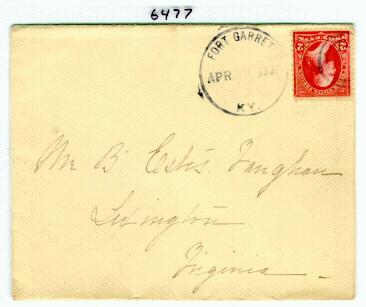 6477
FORT GARRET
APR
KY.
Mr B. Estis Vaughan
Lexington
Virginia